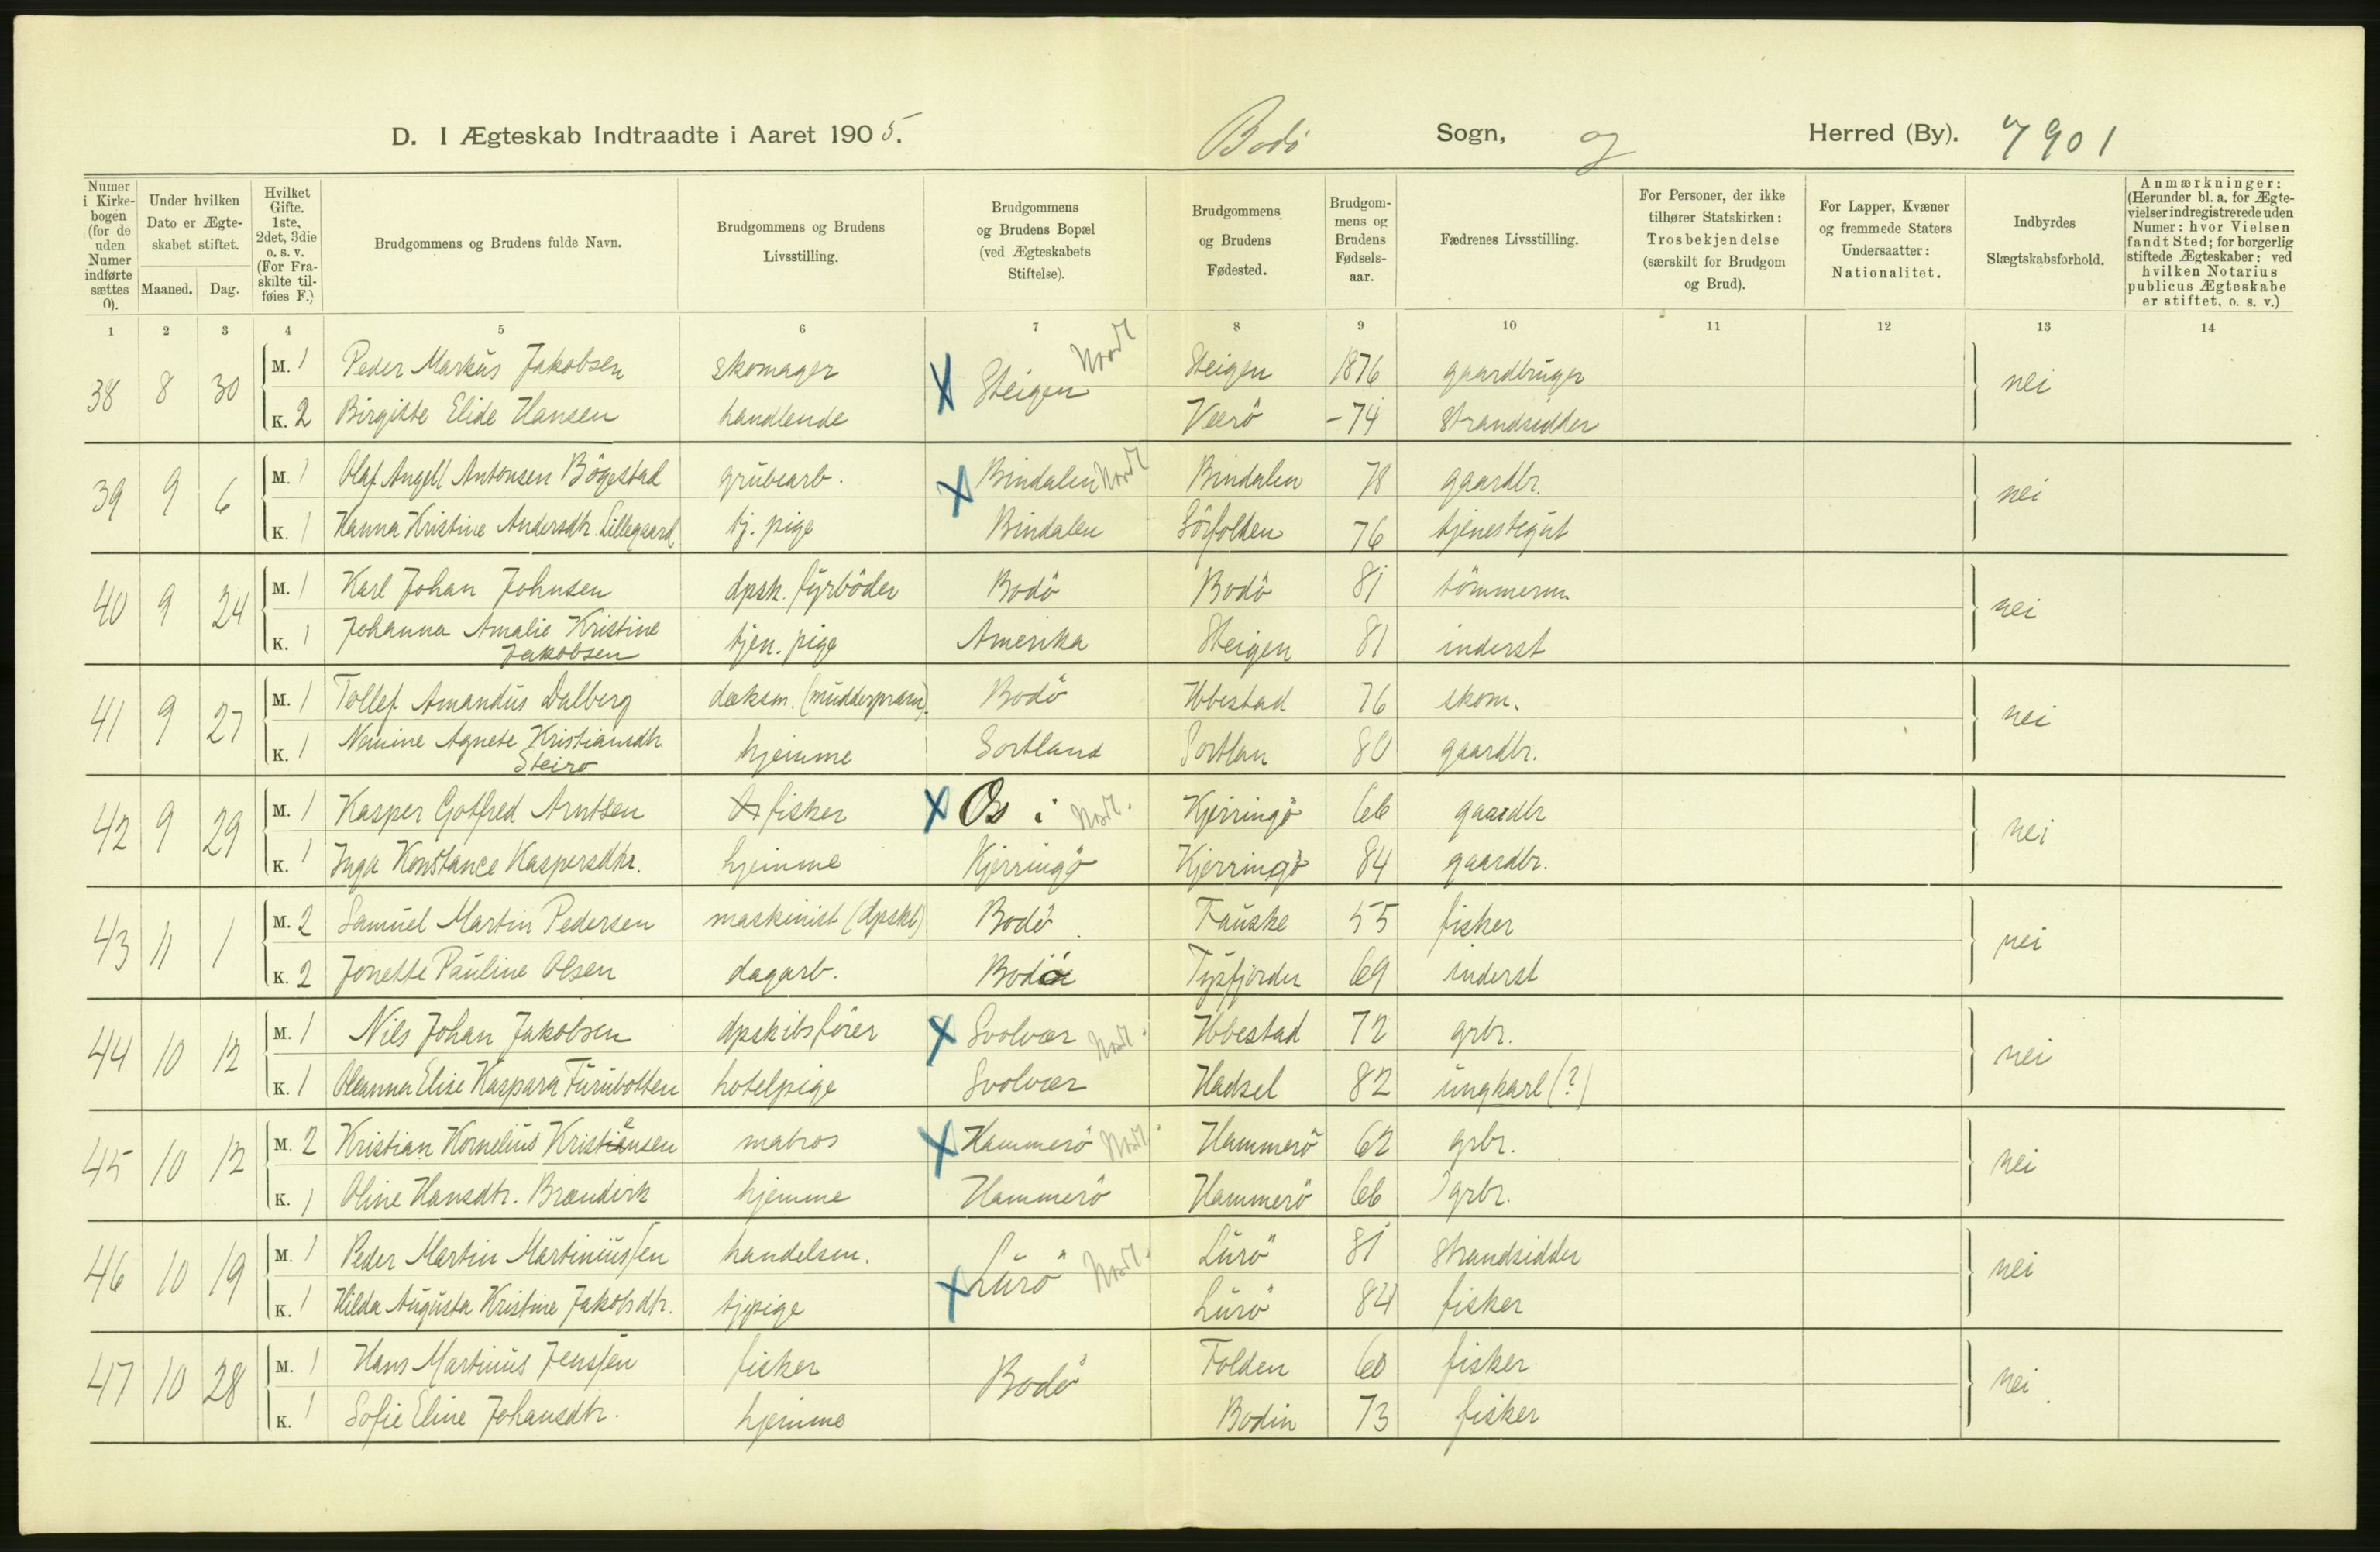 D. I Ægteskab Indtraadte i Aaret 1905. Bodö Sogn, og Herred (By). 7901
Numer i Kirkebogen (for de uden Numer indførte sættes 0).
Under hvilken Dato er Ægteskabet stiftet.
Maaned. Dag.
Hvilket Gifte. 1ste, 2det, 3die o. s. v. (For Fraskilte tilføies F.)
Brudgommens og Brudens fulde Navn.
Brudgommens og Brudens Livsstilling.
Brudgommens og Brudens Bopæl (ved Ægteskabets Stiftelse).
Brudgommens og Brudens Fødested.
Brudgommens og Brudens Fødselsaar.
Fædrenes Livsstilling.
For Personer, der ikke tilhører Statskirken: Trosbekjendelse (særskilt for Brudgom og Brud).
For Lapper, Kvæner og fremmede Staters Undersaatter: Nationalitet.
Indbyrdes Slægtskabsforhold.
Anmærkninger: (Herunder bl. a. for Ægtevielser indregistrerede uden Numer: hvor Vielsen fandt Sted; for borgerlig stiftede Ægteskaber: ved hvilken Notarius publicus Ægteskabe er stiftet, o. s. v.)
1 2 3 4 5 6 7 8 9 10 11 12 13 14
38 8 30 M. 1 Peder Markus Jakobsen skomager Steigen Nordl Steigen 1876 gaardbruger nei
K. 2 Birgitte Elide Hansen handlende Værö -74 Strandsidder
39 9 6 M. 1 Olaf Angell Antonsen Bögestad grubearb. Bindalen Nordl Bindalen 78 gaardbr. nei
K. 1 Hanna Kristine Andersdtr. Lillegaard tj. pige Bindalen Sörfolden 76 tjenestegut
40 9 24 M. 1 Karl Johan Johnsen dpsk. fyrböder Bodö Bodö 81 tömmerm. nei
K. 1 Johanna Amalie Kristine
Jakobsen tjen. pige Amerika Steigen 81 inderst
41 9 27 M. 1 Tollef Amandus Dalberg dæksm. (mudderpram). Bodö Ibbestad 76 skom. nei
K. 1 Nanine Agnete Kristiansdtr
Steiro hjemme Sortland Sortlan 80 gaardbr.
42 9 29 M. 1 Kasper Gotfred Arntsen fisker Os i Nordl. Kjerringö 66 gaardbr nei
K. 1 Inga Konstance Kaspersdtr. hjemme Kjerringö Kjerringö 84 gaardbr.
43 11 1 M. 2 Samuel Martin Pedersen maskinist (dpskb) Bodö Fauske 55 fisker nei
K. 2 Jonette Pauline Olsen dagarb. Bodö Tysfjorden 69 inderst
44 10 12 M. 1 Nils Johan Jakobsen dpskibsförer Svolvær Nordl. Ibbestad 72 grbr. nei
K. 1 Oleanna Elise Kaspara Furubotten hotelpige Svolvær Hadsel 82 ungkarl (?)
45 10 12 M. 2 Kristian Kornelius Kristiansen matros Hammerö Nordl. Hammerö 62 grbr. nei
K. 1 Oline Hansdtr. Brændvik hjemme Hammerö Hammerö 66 grbr.
46 10 19 M. 1 Peder Martin Martiniussen handelsm. Lurö Nordl. Lurö 81 Strandsidder nei
K. 1 Hilda Augusta Kristine Jakobsdtr. tjpige Lurö 84 fisker
47 10 28 M. 1 Hans Martinus Jenssen fisker Bodö Folden 60 fisker nei.
K. 1 Sofie Eline Johansdtr. hjemme Bodin 73 fisker